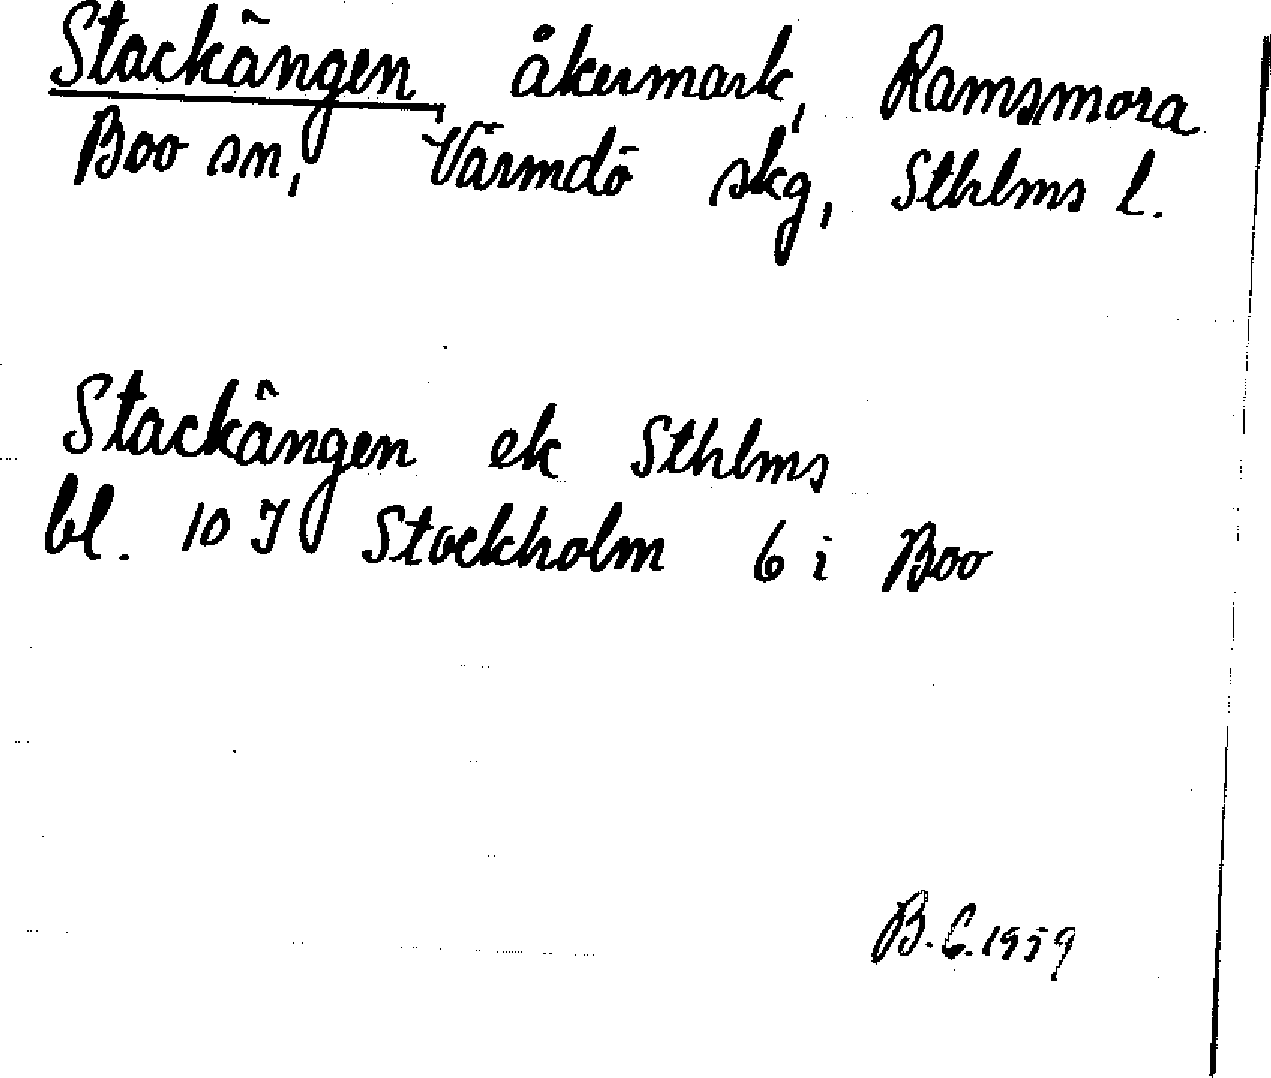 Stackängen, åkermark, Ramsmora
Boo sn, Värmdö skg, Sthlms l.
Stackängen ek Sthlms
bl. 10 I Stockholm 6 i Boo
B.C.1959